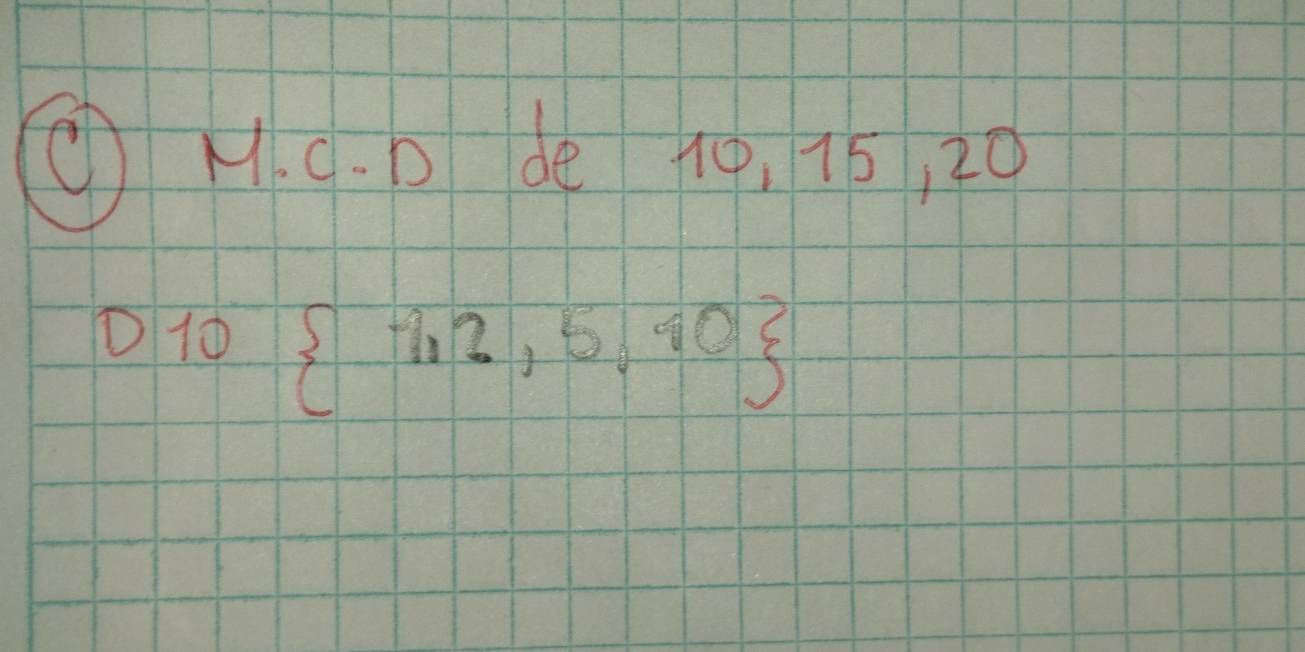 C M.C.D de 10, 15, 20
D10 { 1,2, 5, 10}